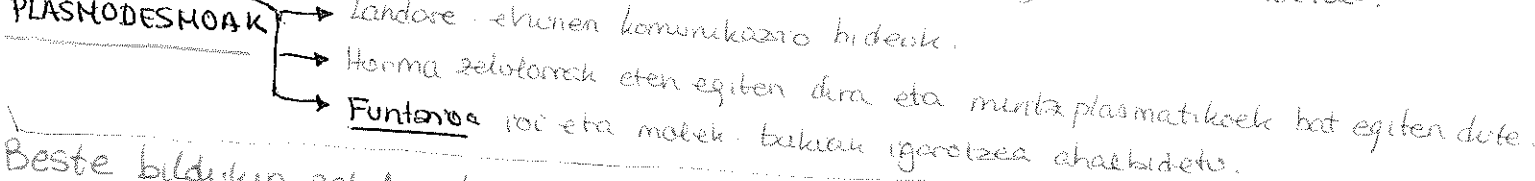 PLASMODESMOAK → Landare ehunen komunikazio bideak.
→ Horma zelularrak eten egiten dira eta mintz plasmatikoek bat egiten dute.
→ Funtzioa ioi eta molek. bakuak igarotzea ahalbidetu.
Beste